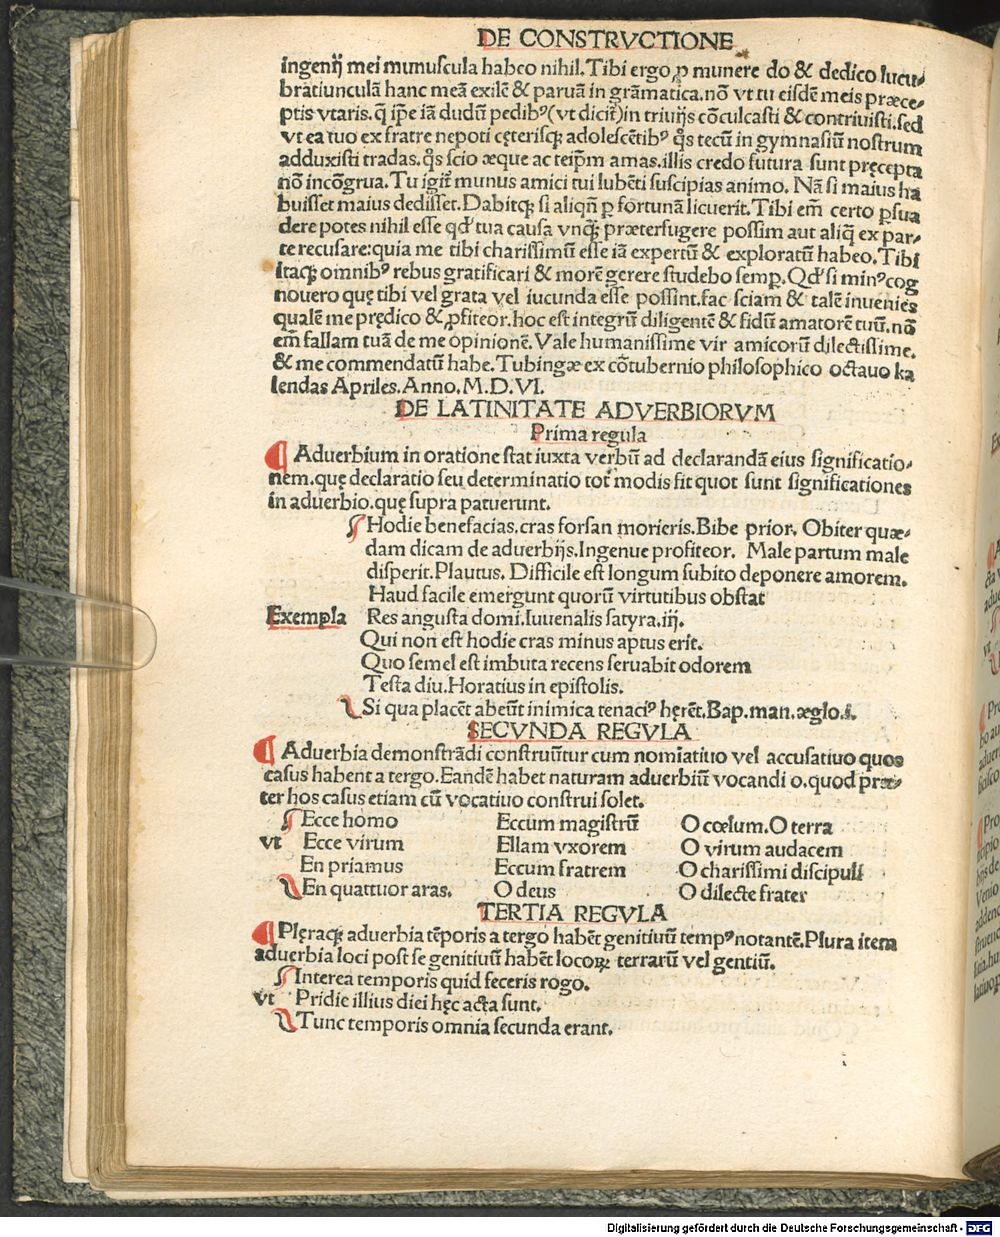 DE CONSTRVCTIONE
ingenij mei munuſcula habeo nihil. Tibi ergo ꝓ munere do & dedico lucu⸗
bratiunculā hanc meā exilē & paruā in grāmatica. nō vt tu eiſdē meis præce⸗
ptis vtaris. q̄ ip̄e iā dudū pedibꝰ (vt dicit᷑) in triuijs cōculcaſti & contriuiſti. ſed
vt ea tuo ex fratre nepoti cęteriſqꝫ adoleſcētibꝰ q̄s tecū in gymnaſiū noſtrum
adduxiſti tradas. q̄s ſcio æque ac teip̄m amas. illis credo futura ſunt pręcepta
nō incōgrua. Tu igit᷑ munus amici tui lubēti ſuſcipias animo. Nā ſi maius ha
buiſſet maius dediſſet. Dabitqꝫ ſi aliqñ ꝑ fortunā licuerit. Tibi em̄ certo ꝑſua
dere potes nihil eſſe qd' tua cauſa vnqꝫ præterfugere poſſim aut aliq̄ ex par⸗
te recuſare: quia me tibi chariſſimū eſſe iā expertū & exploratū habeo. Tibi
itaqꝫ omnibꝰ rebus gratificari & morē gerere ſtudebo ſemꝑ. Qd' ſi minꝰ cog
nouero quę tibi vel grata vel iucunda eſſe poſſint. fac ſciam & talē inuenies
qualē me prędico & ꝓfiteor. hoc eſt integrū diligentē & fidū amatorē tuū. nō
em̄ fallam tuā de me opinionē. Vale humaniſſime vir amicorū dilectiſſime.
& me commendatū habe. Tubingæ ex cōtubernio philoſophico octauo ka
lendas Apriles. Anno. M. D. VI.
DE LATINITATE ADVERBIORVM
Prima regula
Aduerbium in oratione ſtat iuxta verbū ad declarandā eius ſignificatio⸗
nem. quę declaratio ſeu determinatio tot modis fit quot ſunt ſignificationes
in aduerbio. quę ſupra patuerunt.
Hodie benefacias. cras forſan morieris. Bibe prior. Obiter quæ⸗
dam dicam de aduerbijs. Ingenue profiteor. Male partum male
diſperit. Plautus. Difficile eſt longum ſubito deponere amorem.
Haud facile emergunt quorū virtutibus obſtat
Exempla Res anguſta domi. Iuuenalis ſatyra. iij.
Qui non eſt hodie cras minus aptus erit.
Quo ſemel eſt imbuta recens ſeruabit odorem
Teſta diu. Horatius in epiſtolis.
Si qua placēt abeūt inimica tenaciꝰ hęrēt. Bap. man. æglo. i.
SECVNDA REGVLA
Aduerbia demonſtrādi conſtruūtur cum nomīatiuo vel accuſatiuo quos
caſus habent a tergo. Eandē habet naturam aduerbiū vocandi o. quod præ⸗
ter hos caſus etiam cū vocatiuo conſtrui ſolet.
Ecce homo Eccum magiſtrū O cœlum. O terra
vt Ecce virum Ellam vxorem O virum audacem
En priamus Eccum fratrem O chariſſimi diſcipuli
En quattuor aras. O deus O dilecte frater
TERTIA REGVLA
Plęraqꝫ aduerbia tēporis a tergo habēt genitiuū tempꝰ notantē. Plura item
aduerbia loci poſt ſe genitiuū habēt locoꝝ terrarū vel gentiū.
Interea temporis quid feceris rogo.
vt Pridie illius diei hęc acta ſunt.
Tunc temporis omnia ſecunda erant.
Digitalisierung gefördert durch die Deutsche Forschungsgemeinschaft - DFG